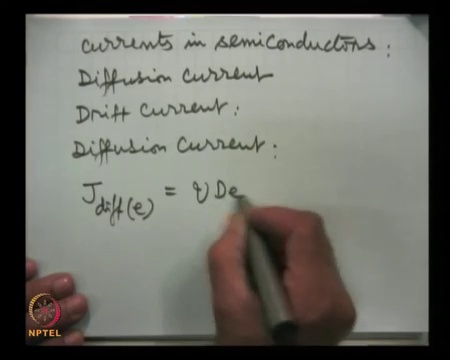 Currents in semiconductors:
Diffusion Current
Drift Current:
Diffusion Current:
J diff(e) = q De
NPTEL